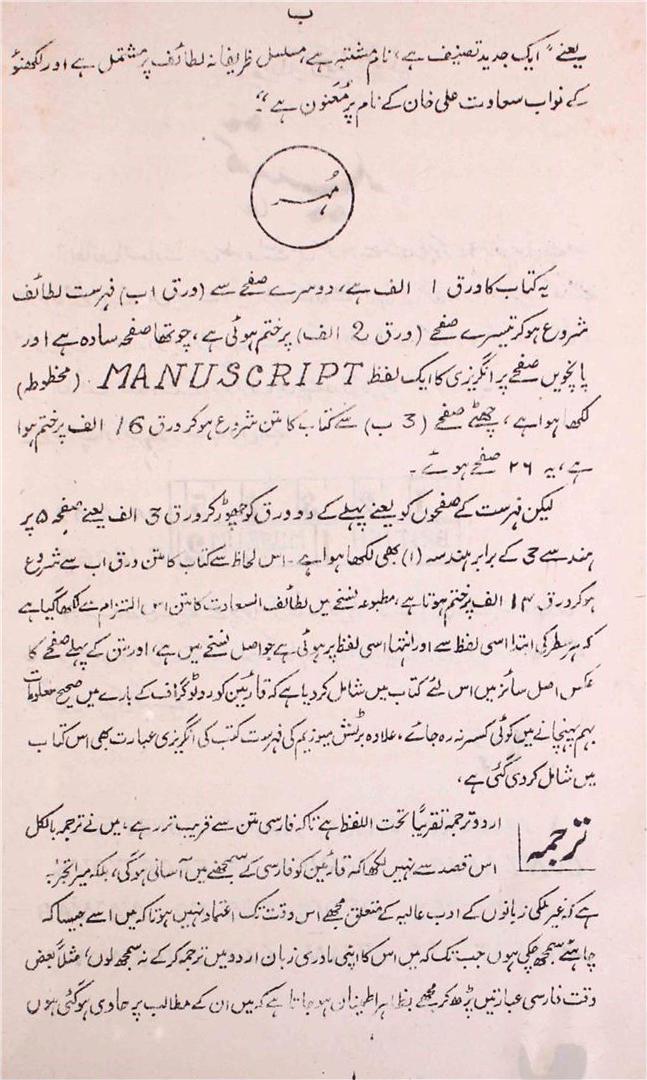 ب
یعنے "ایک جدید تصنیف ہے، نام مشتبہ ہے، مسلسل ظریفانہ لطائف پر مشتمل ہے اور لکھنؤ
کے نواب سعادت علی خان کے نام پر مُعَنون ہے"۔
مُہر
یہ کتاب کا ورق 1 الف ہے، دوسرے صفحے سے (ورق ۱ب) فہرست لطائف
شروع ہو کر تیسرے صفحے (ورق 2 الف) پر ختم ہوئی ہے، چوتھا صفحہ سادہ ہے اور
پانچویں صفحے پر انگریزی کا ایک لفظ MANUSCRIPT (مخطوطہ)
لکھا ہوا ہے، چھٹے صفحے (3 ب) سے کتاب کا متن شروع ہو کر ورق 16 الف پر ختم ہوا
ہے، یہ ۲۶ صفحے ہوئے۔
لیکن فہرست کے صفحوں کو یعنے پہلے کے دو ورق کو چھوڑ کر ورق 3 الف یعنے صفحہ ۵ پر
ہندسے 3 کے برابر ہندسہ (۱) بھی لکھا ہوا ہے۔ اس لحاظ سے کتاب کا متن ورق ۱ب سے شروع
ہو کر ورق ۱۴ الف پر ختم ہوتا ہے، مطبوعہ نسخے میں لطائف السعادت کا متن اس التزام سے لکھا گیا ہے
کہ ہر سطر کی ابتدا اسی لفظ سے اور انتہا اسی لفظ پر ہوئی ہے جو اصل نسخے میں ہے، اور متن کے پہلے صفحے کا
عکس اصل سائز میں اس لئے کتاب میں شامل کر دیا ہے کہ قارئین کو روٹوگراف کے بارے میں صحیح معلومات
بہم پہنچانے میں کوئی کسر نہ رہ جائے، علاوہ برٹش میوزیم کی فہرست کتب کی انگریزی عبارت بھی اس کتاب
میں شامل کر دی گئی ہے،
ترجمہ
اردو ترجمہ تقریباً تحت اللفظ ہے تاکہ فارسی متن سے قریب تر رہے، میں نے ترجمہ بالکل
اس قصد سے نہیں لکھا کہ قارئین کو فارسی کے سمجھنے میں آسانی ہوگی، بلکہ میرا تجربہ
ہے کہ غیر ملکی زبانوں کے ادب عالیہ کے متعلق مجھے اس وقت تک اعتماد نہیں ہوتا کہ میں اسے جیسا کہ
چاہئے سمجھ چکی ہوں جب تک کہ میں اس کا اپنی مادری زبان اردو میں ترجمہ کر کے نہ سمجھ لوں، مثلاً بعض
وقت فارسی عبارتیں پڑھ کر مجھے بظاہر اطمینان ہو جاتا ہے کہ میں ان کے مطالب پر حاوی ہو گئی ہوں